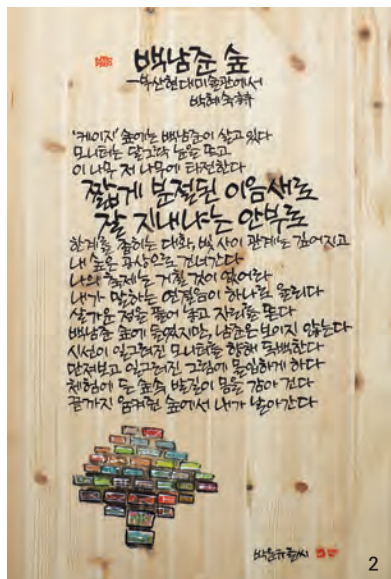 백남준 숲
—부산현대미술관에서
박혜숙 詩
'케이지' 숲에는 백남준이 살고 있다
모니터는 달그락 눈을 뜨고
이 나무 저 나무에 타전한다
짧게 분절된 이음새로
잘 지내냐는 안부로
한계를 좁히는 대화, 벽 사이 관계는 깊어지고
내 숲은 환상으로 건너간다
나의 축제는 거칠 것이 없어라
내가 말하는 연결음이 하나로 울린다
살가운 정을 풀어 놓고 자리를 뜬다
백남준 숲에 들었지만, 남준은 보이지 않는다
시선이 일그러진 모니터를 향해 독백한다
만져보고 일그러진 그림에 몰입하게 하다
체험에 든 숲속 발길이 몸을 감아 건다
끝까지 움켜쥔 숲에서 내가 날아간다
2